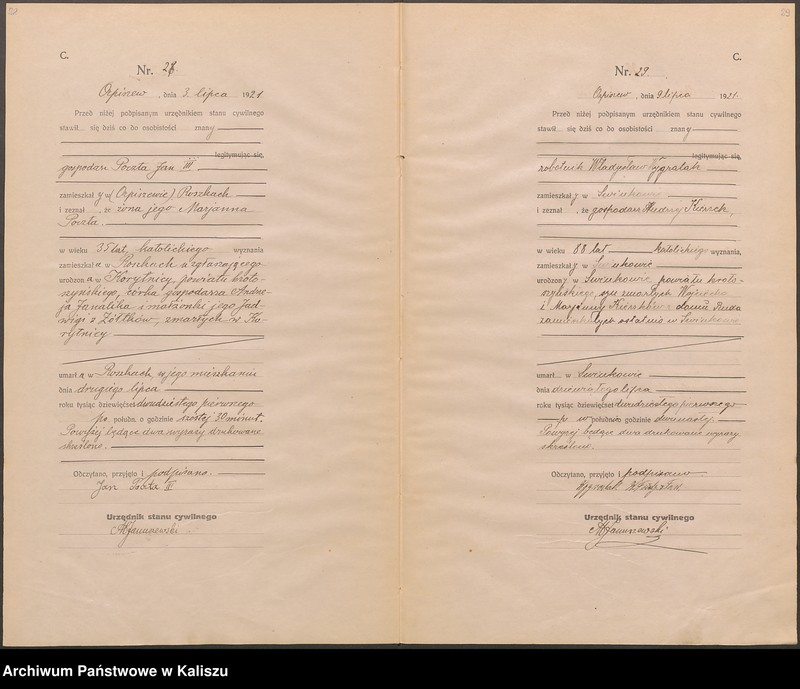 29
C.
Nr. 28
Orpiszew, dnia 3. lipca 1921
Przed niżej podpisanym urzędnikiem stanu cywilnego
stawił... się dziś co do osobistości znany
legitymując się,
gospodarz Poczta Jan III
zamieszkał y w (Orpiszewie) Roszkach
i zeznał , że żona jego Marjanna
Poczta.
w wieku 35 lat, katolickiego wyznania
zamieszkał a w Roszkach u zgłaszającego
urodzon a w Korytnicy, powiatu kroto-
szyńskiego, córka gospodarza Andrze-
ja i małżonki jego Jad-
wigi z Żółtków, zmarłych w Ko-
rytnicy
umarł a w Roszkach w jego mieszkaniu
dnia drugiego lipca
roku tysiąc dziewięćset dwudziestego pierwszego
po połudn. o godzinie szóstej 30 minut.
Powyżej będące dwa wyrazy drukowane
skreślono.
Odczytano, przyjęto i podpisano.
Jan Poczta III
Urzędnik stanu cywilnego
Januszewski
C.
Nr. 29
Orpiszew, dnia 9 lipca 1921.
Przed niżej podpisanym urzędnikiem stanu cywilnego
stawił... się dziś co do osobistości znany
legitymując się,
robotnik Władysław Wygralak
zamieszkał y w Świnkowie
i zeznał , że gospodarz Andrzej
w wieku 88 lat katolickiego wyznania,
zamieszkał y w Świnkowie
urodzon y w Świnkowie, powiatu kroto-
szyńskiego, syn zmarłych Wojciecha
i Marjanny z domu
zamieszkałych ostatnio w Świnkowie
umarł... w Świnkowie
dnia dziewiątego lipca
roku tysiąc dziewięćset dwudziestego pierwszego
w południe godzinie dwunastej.
Powyżej będące dwa drukowane wyrazy
skreślono.
Odczytano, przyjęto i podpisano
Wygralak Władysław
Urzędnik stanu cywilnego
Januszewski
Archiwum Państwowe w Kaliszu